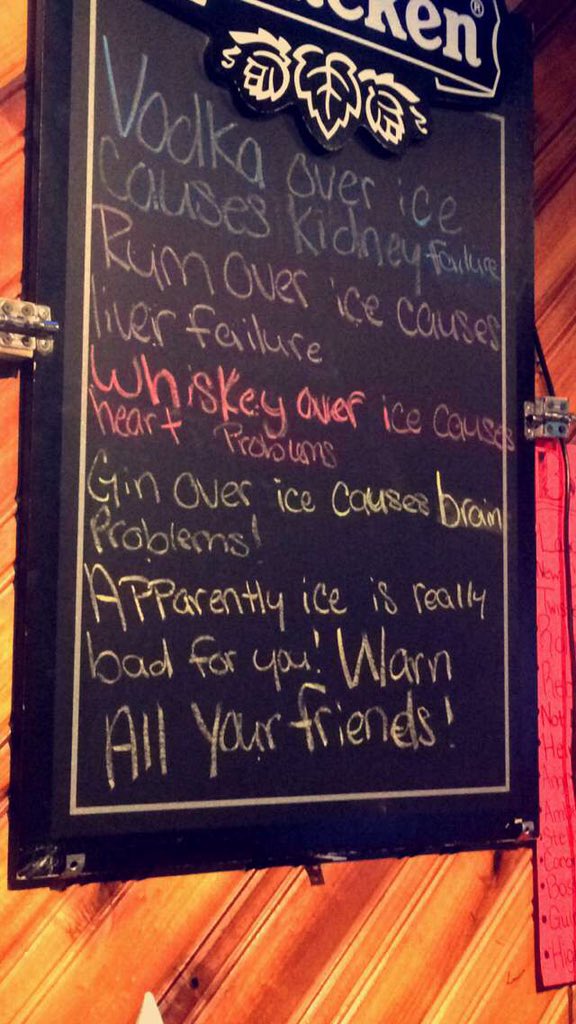 Vodka over ice
causes kidney failure
Rum over ice causes
liver failure
Whiskey over ice causes
heart Problums
Gin over ice causes brain
Problems!
Apparently ice is really
bad for you! Warn
All your friends!